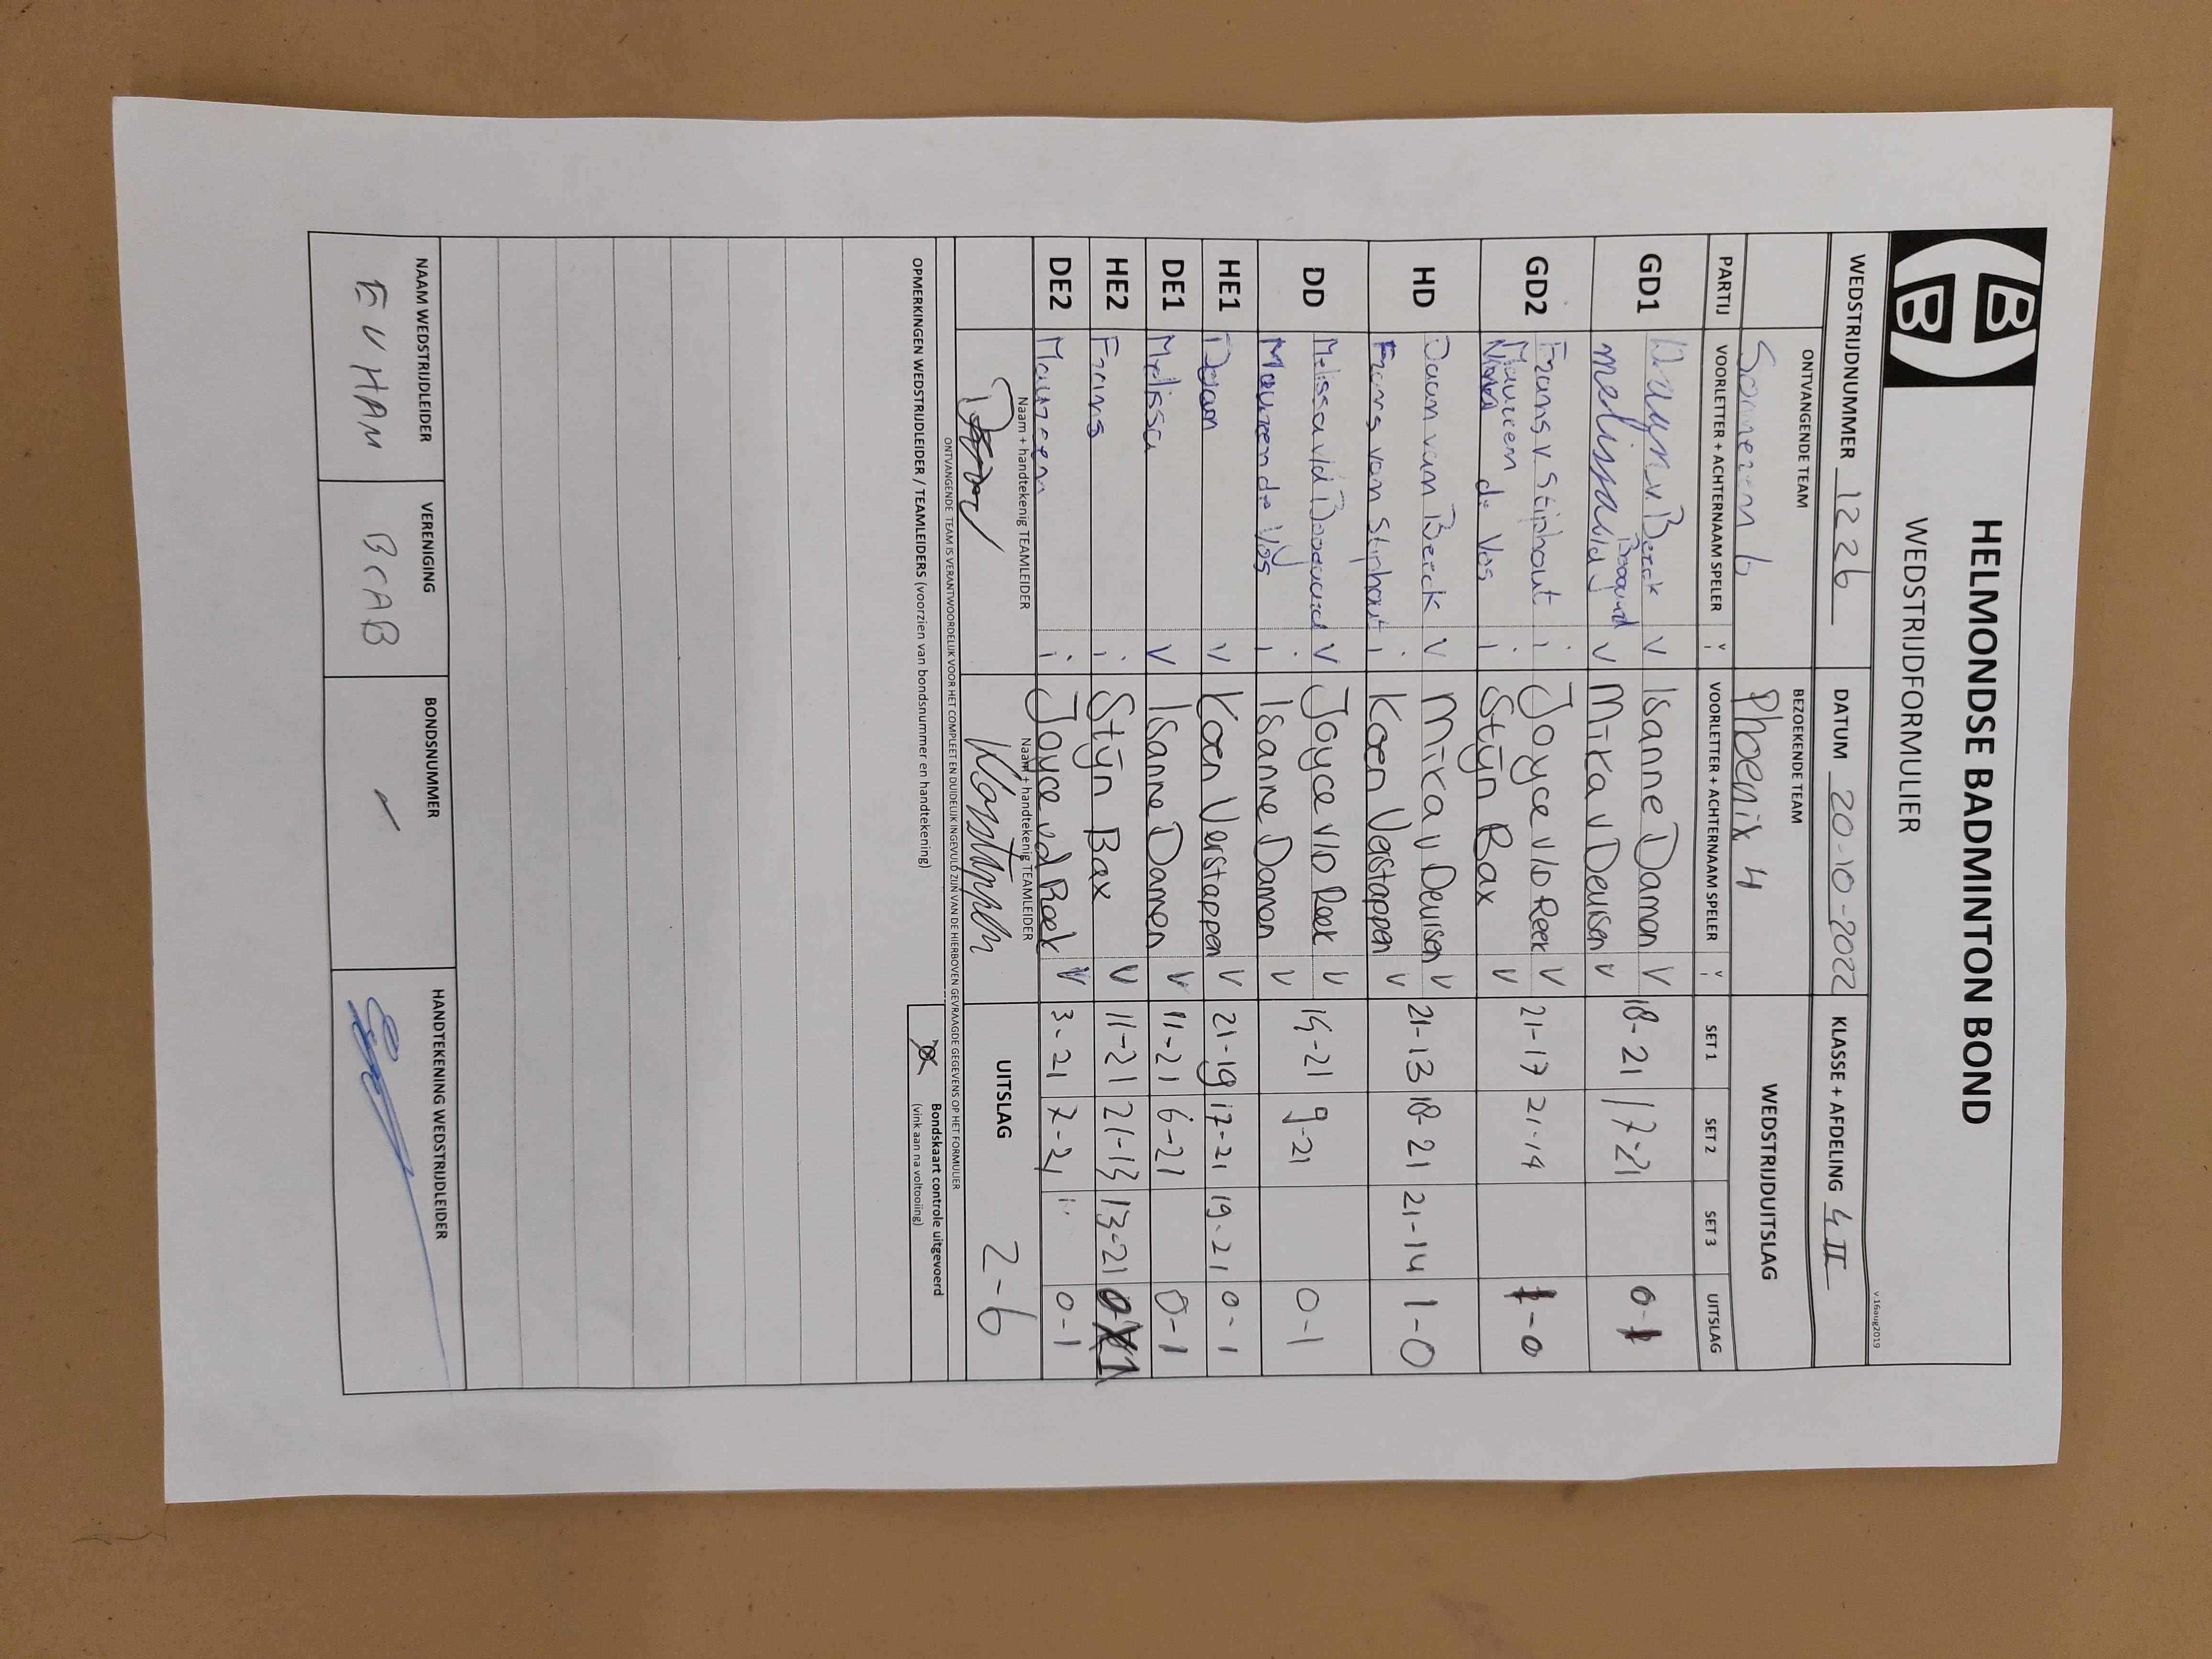 HELMONDSE BADMINTON BOND
WEDSTRIJDFORMULIER
v.16aug2019
WEDSTRIJDNUMMER 1226 DATUM 20-10-2022 KLASSE + AFDELING 4 II
ONTVANGENDE TEAM BEZOEKENDE TEAM WEDSTRIJDUITSLAG
Someren 6 Phoenix 4
PARTIJ VOORLETTER + ACHTERNAAM SPELER V I VOORLETTER + ACHTERNAAM SPELER V I SET 1 SET 2 SET 3 UITSLAG
GD1 Daan v Berck V Isanne Damen V 18-21 17-21 0-1
Melissa v/d Boogaard V Mika v Deursen V
GD2 Frans v Stiphout i Joyce v/d Reek V 21-17 21-14 1-0
Maureen de Vos i Stijn Bax V
HD Daan van Berck V Mika v Deursen V 21-13 18-21 21-14 1-0
Frans van Stiphout i Koen Verstappen V
DD Melissa v/d Boogaard V Joyce v/d Reek V 15-21 9-21 0-1
Maureen de Vos i Isanne Damen V
HE1 Daan V Koen Verstappen V 21-19 17-21 19-21 0-1
DE1 Melissa V Isanne Damen V 11-21 6-21 0-1
HE2 Frans i Stijn Bax V 11-21 21-13 13-21 0-1
DE2 Maureen i Joyce vd Reek V 3-21 7-21 0-1
Naam + handtekenig TEAMLEIDER Naam + handtekenig TEAMLEIDER
UITSLAG 2-6
ONTVANGENDE TEAM IS VERANTWOORDELIJK VOOR HET COMPLEET EN DUIDELIJK INGEVULD ZIJN VAN DE HIERBOVEN GEVRAAGDE GEGEVENS OP HET FORMULIER
OPMERKINGEN WEDSTRIJDLEIDER / TEAMLEIDERS (voorzien van bondsnummer en handtekening)
Bondskaart controle uitgevoerd
(vink aan na voltooiing)
NAAM WEDSTRIJDLEIDER VERENIGING BONDSNUMMER HANDTEKENING WEDSTRIJDLEIDER
E V HAM BCAB